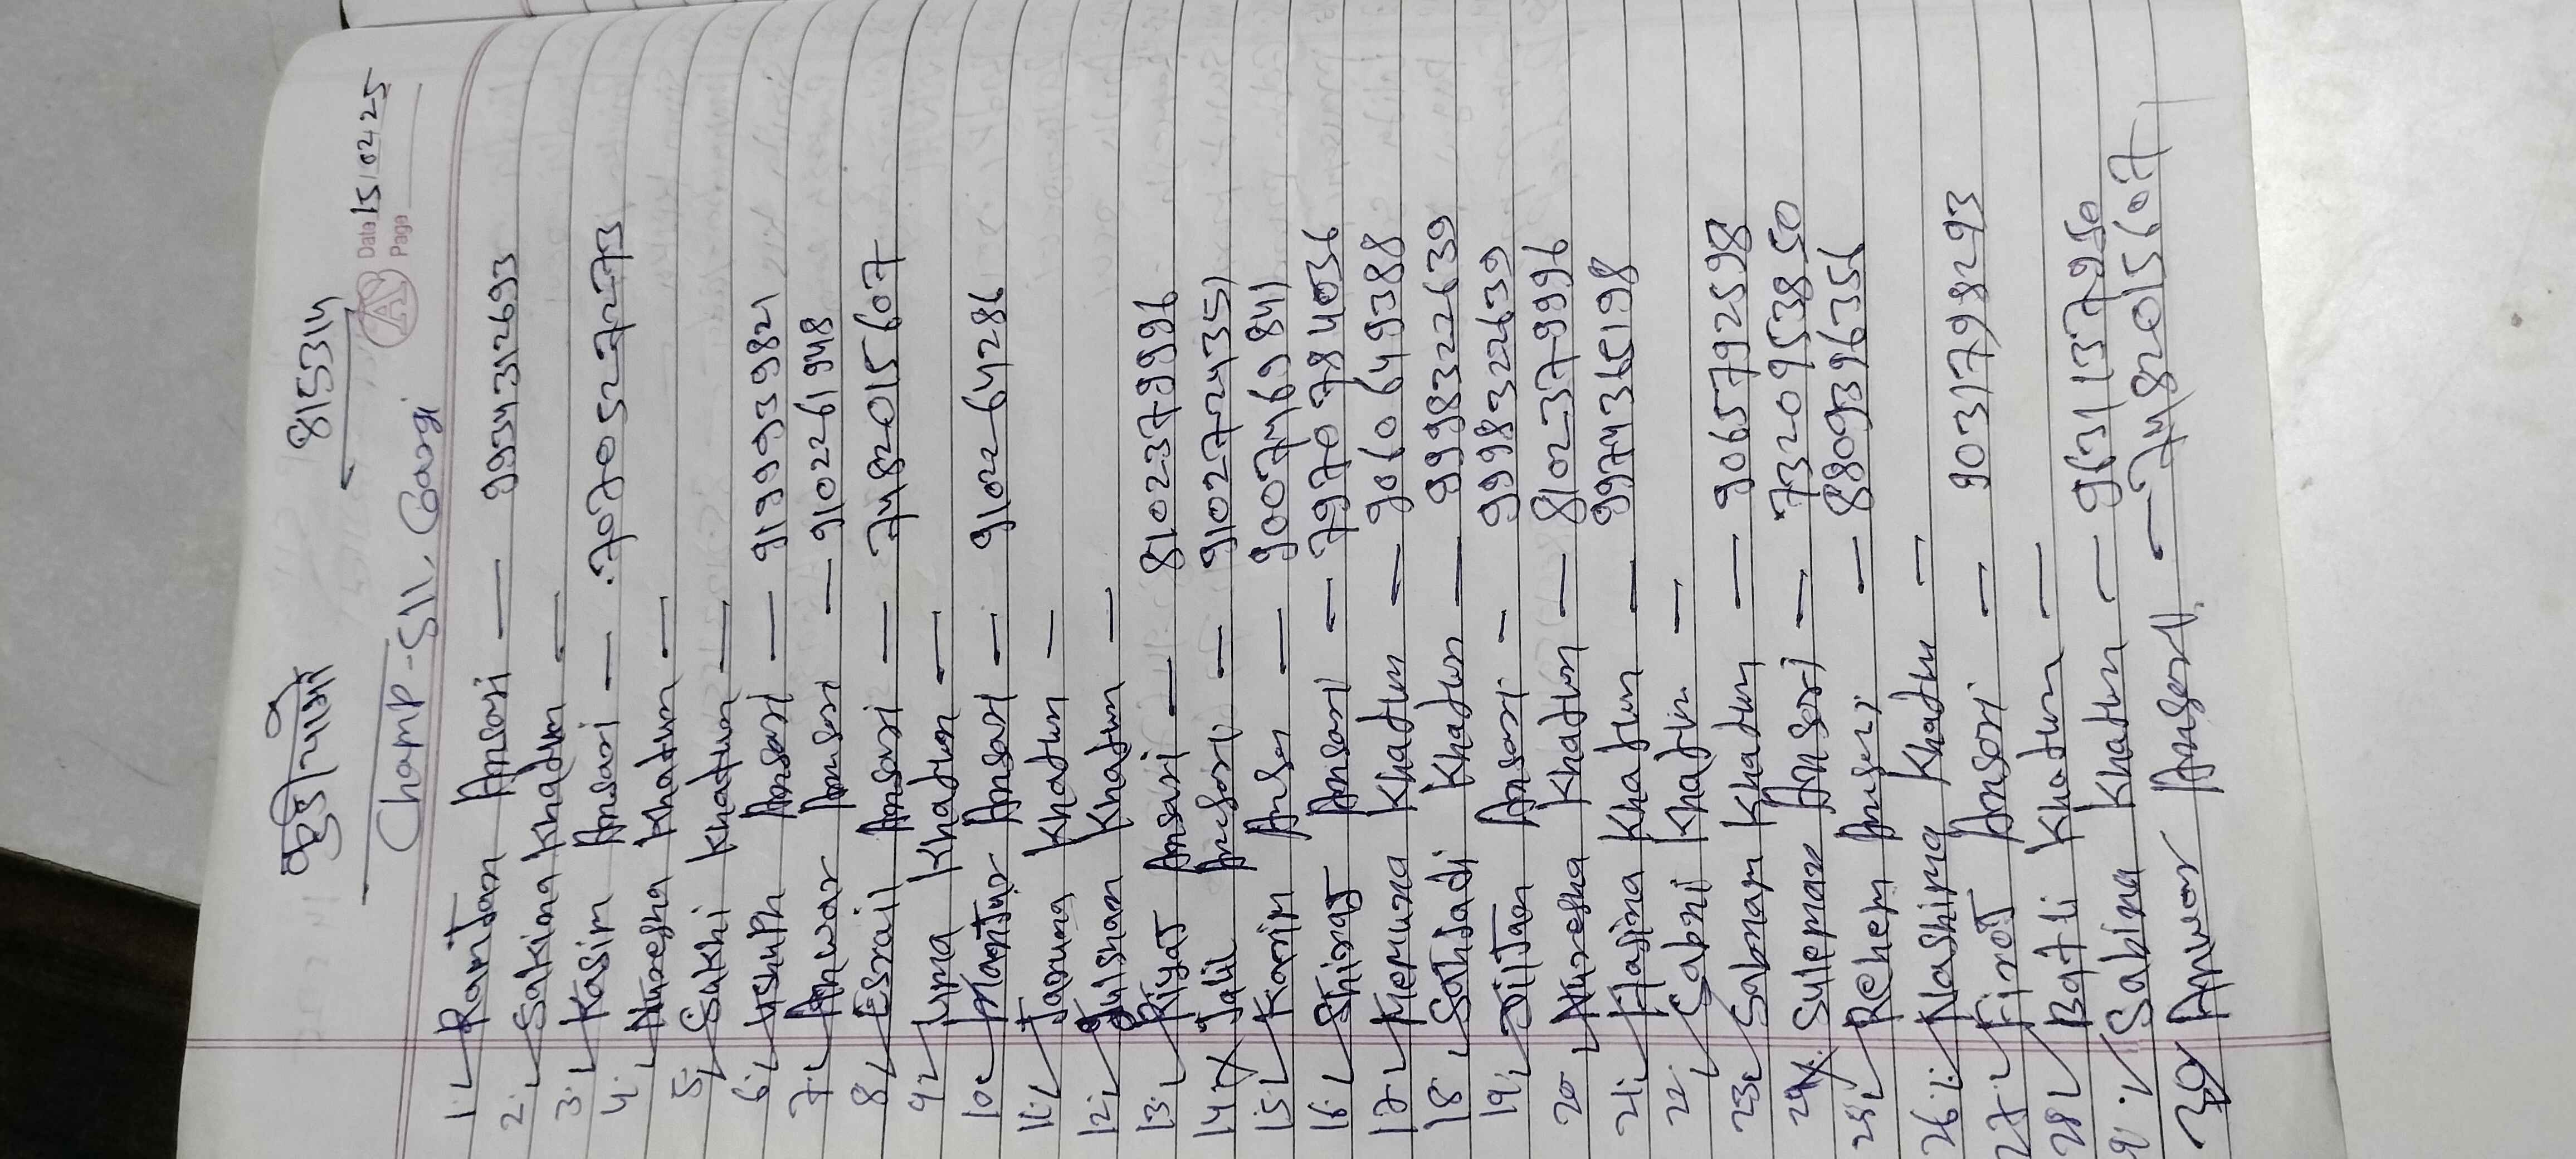 815314
Date 15/02/25
Page
Champ - S11, Gargi
1. Ramjan Ansari — 9934312693
2. Sakina Khatun —
3. Kasim Ansari — 7070527273
4. Nuresha Khatun —
5. Sukhi Khatun —
6. Ushuph Ansari — 9199939821
7. Anwar Ansari — 9102261948
8. Esrail Ansari — 7482015607
9. Uma Khatun —
10. Mantur Ansari — 9102264286
11. Jarung Khatun —
12. Gulshan Khatun —
13. Riyaj Ansari — 8102379996
14. Jalil Ansari — 9102724351
15. Karim Ansa — 9007469841
16. Shiraj Ansari — 7970784036
17. Memuna Khatun — 9060649388
18. Sahjadi Khatun — 9998322639
19. Jiljan Ansari — 9998322639
20. Nuresha Khatun — 8102379996
21. Hajina Khatun — 9974365198
22. Sabni Khatun —
23. Sabnam Khatun — 9065792598
24. Suleman Ansari — 7320953850
25. Rehem Ansari — 8809396356
26. Nashima Khatun —
27. Firoj Ansari — 9031798293
28. Batli Khatun —
9. Sakina Khatun — 9631137950
30 Anwar Ansari. — 7482015607